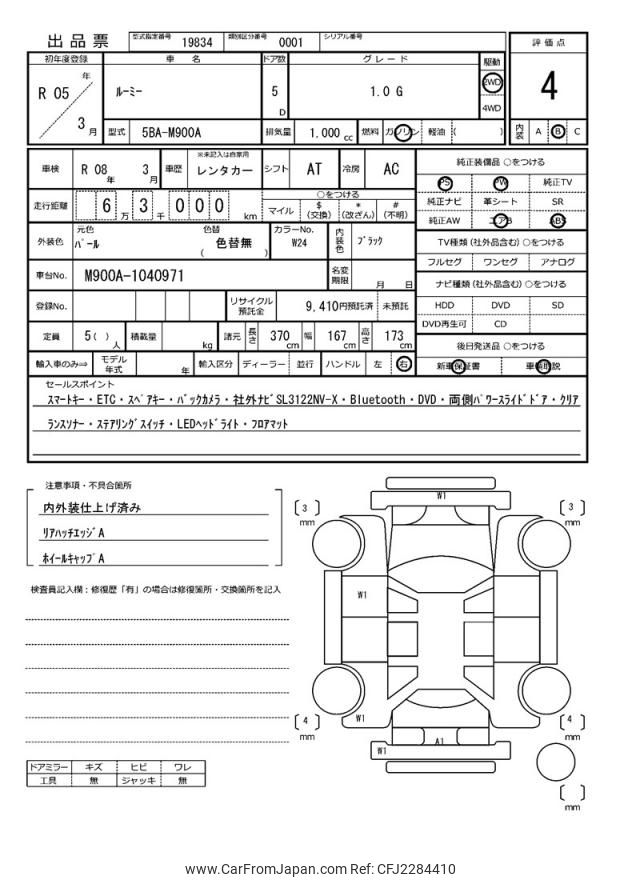 出品票 型式指定番号 19834 類別区分番号 0001 シリアル番号
評価点
初年度登録 車名 ドア数 グレード 駆動
R 05 年 3 月 ルーミー 5 D 1.0 G 2WD 4WD
4
型式 5BA-M900A 排気量 1.000 cc 燃料 ガソリン 軽油 ( )
内装 A B C
車検 R 08 年 3 月 車歴 ※未記入は自家用 レンタカー シフト AT 冷房 AC
純正装備品 ○をつける
PS PW 純正TV
純正ナビ 革シート SR
純正AW エアB ABS
走行距離 6 万 3 千 0 0 0 km
○をつける
マイル $ (交換) * (改ざん) # (不明)
外装色 元色 パール 色替 色替無 ( ) カラーNo. W24 内装色 ブラック
TV種類 (社外品含む) ○をつける
フルセグ ワンセグ アナログ
車台No. M900A-1040971 名変期限 月 日
ナビ種類 (社外品含む) ○をつける
HDD DVD SD
DVD再生可 CD
登録No. リサイクル預託金 9,410円預託済 未預託
定員 5( ) 人 積載量 kg 諸元 長さ 370 cm 幅 167 cm 高さ 173 cm
後日発送品 ○をつける
新車保証書 車輌取説
輸入車のみ⇒ モデル年式 年 輸入区分 ディーラー・並行 ハンドル 左・右
セールスポイント
スマートキー・ETC・スペアキー・バックカメラ・社外ナビSL3122NV-X・Bluetooth・DVD・両側パワースライドドア・クリア
ランスソナー・ステアリングスイッチ・LEDヘッドライト・フロアマット
注意事項・不具合箇所
内外装仕上げ済み
リアハッチエッジA
ホイールキャップA
検査員記入欄：修復歴「有」の場合は修復箇所・交換箇所を記入
W1
3 mm
3 mm
W1
4 mm
W1
4 mm
A1
W1
mm
ドアミラー キズ ヒビ ワレ
工具 無 ジャッキ 無
www.CarFromJapan.com Ref: CFJ2284410